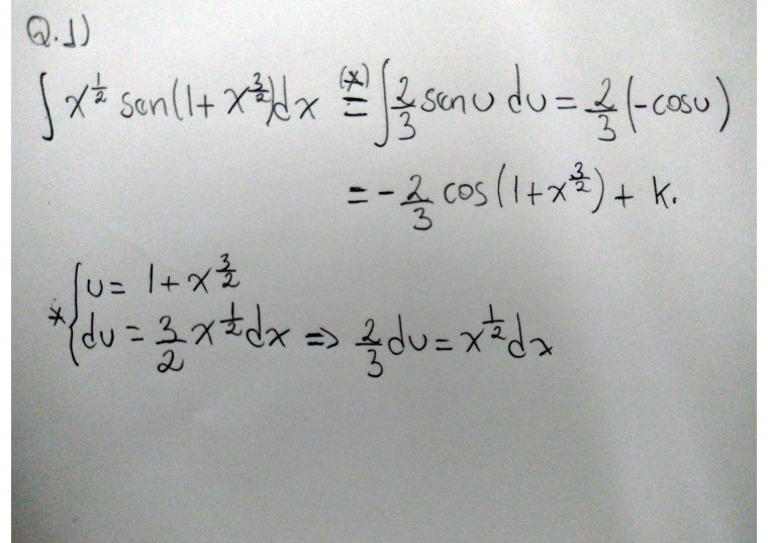 Q.1)
∫ x^{1/2} sen(1+ x^{3/2})dx (*)= ∫ 2/3 senu du = 2/3 (-cosu)
= - 2/3 cos (1+x^{3/2}) + k.
* { u= 1+x^{3/2}
du = 3/2 x^{1/2} dx => 2/3 du = x^{1/2} dx